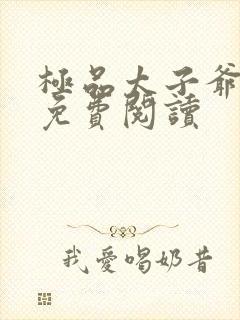 極品太子爺
免費閱讀
我愛喝奶昔